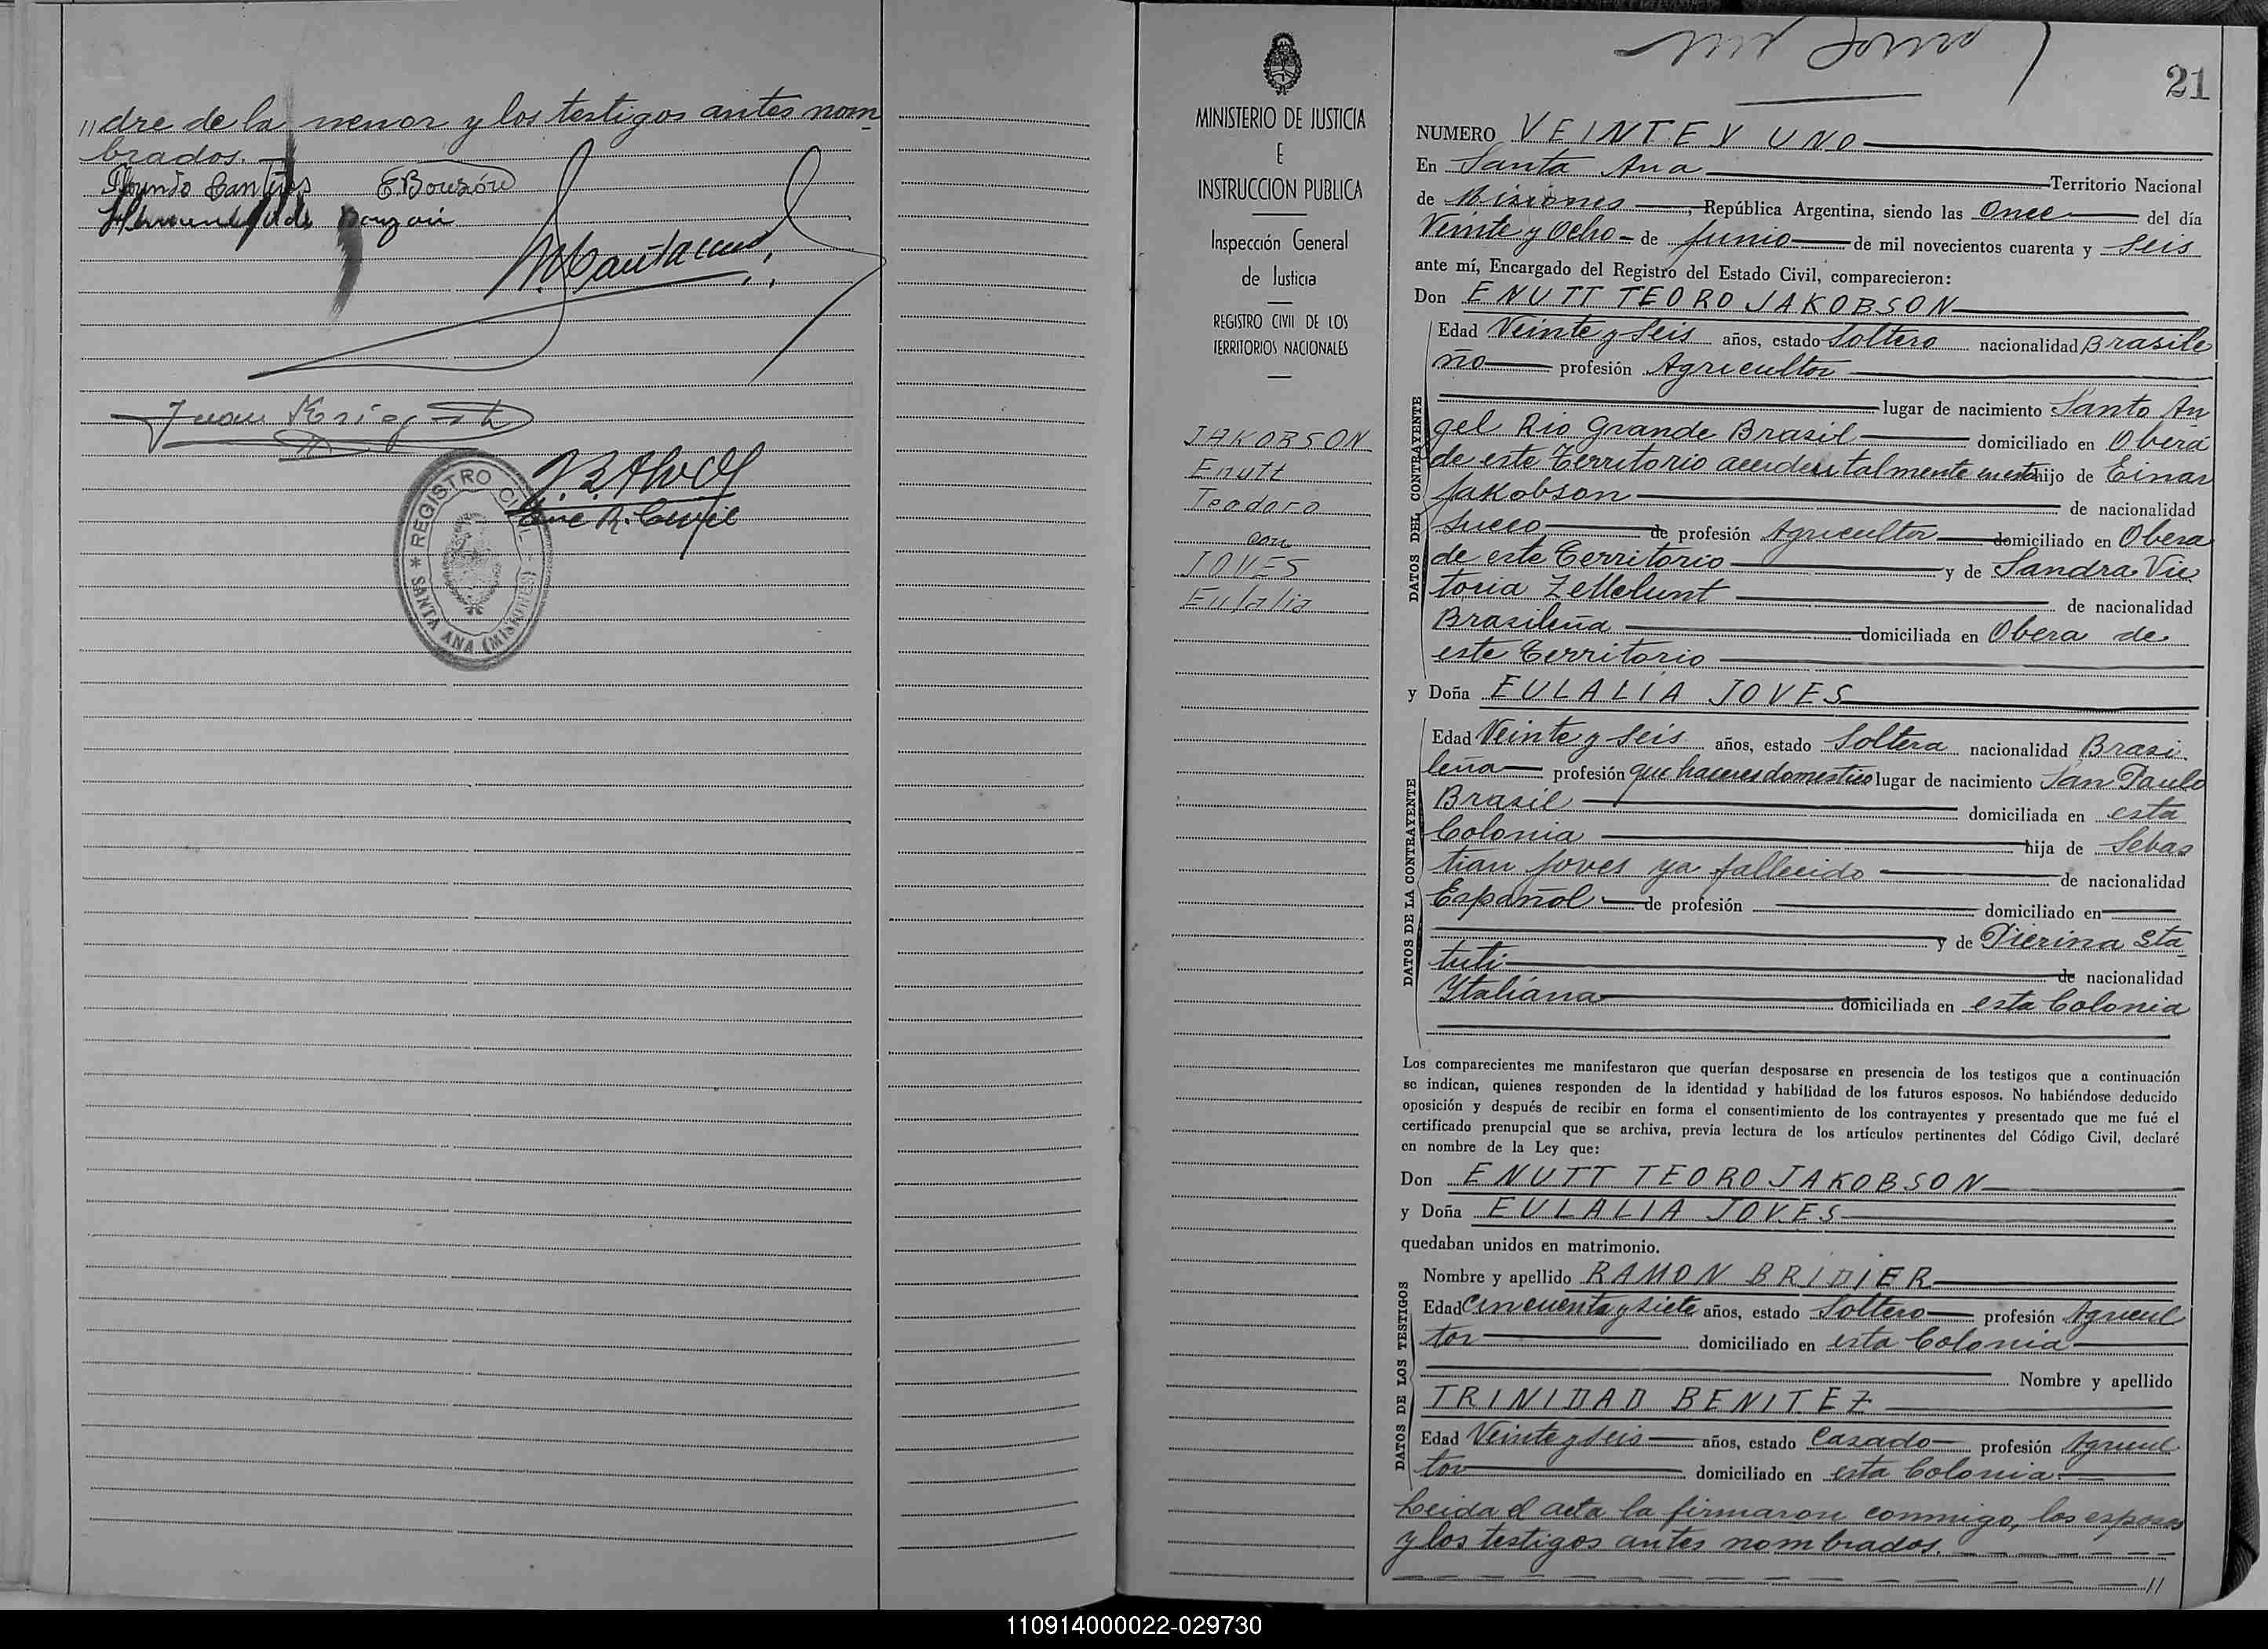 //dre de la menor y los testigos antes nom
brados.
E Bouzón
Juan
REGISTRO CIVIL
SANTA ANA (MISIONES)
MINISTERIO DE JUSTICIA
E
INSTRUCCION PUBLICA
Inspección General
de Justicia
REGISTRO CIVIL DE LOS
TERRITORIOS NACIONALES
JAKOBSON
Enutt
Teodoro
con
JOVES
Eulalia
21
NUMERO VEINTE Y UNO
En Santa Ana Territorio Nacional
de Misiones, República Argentina, siendo las Once del día
Veinte y Ocho de Junio de mil novecientos cuarenta y Seis
ante mí, Encargado del Registro del Estado Civil, comparecieron:
Don ENUTT TEORO JAKOBSON
DATOS DEL CONTRAYENTE
Edad Veinte y Seis años, estado Soltero nacionalidad Brasile
ño profesión Agricultor
lugar de nacimiento Santo An
gel Rio Grande Brasil domiciliado en Oberá
de este Territorio accidentalmente en esta hijo de Einar
Jakobson de nacionalidad
Sueco de profesión Agricultor domiciliado en Obera
de este Territorio y de Sandra Vic
toria de nacionalidad
Brasileña domiciliada en Obera de
este Territorio
y Doña EULALIA JOVES
DATOS DE LA CONTRAYENTE
Edad Veinte y Seis años, estado Soltera nacionalidad Brasi
leña profesión que haceres domestico lugar de nacimiento San Paulo
Brasil domiciliada en esta
Colonia hija de Sebas
tian Joves ya fallecido de nacionalidad
Español de profesión domiciliado en
y de Pierina Sta
tuti de nacionalidad
Ytaliána domiciliada en esta Colonia
Los comparecientes me manifestaron que querían desposarse en presencia de los testigos que a continuación
se indican, quienes responden de la identidad y habilidad de los futuros esposos. No habiéndose deducido
oposición y después de recibir en forma el consentimiento de los contrayentes y presentado que me fué el
certificado prenupcial que se archiva, previa lectura de los artículos pertinentes del Código Civil, declaré
en nombre de la Ley que:
Don ENUTT TEORO JAKOBSON
y Doña EULALIA JOVES
quedaban unidos en matrimonio.
DATOS DE LOS TESTIGOS
Nombre y apellido RAMON BRIDIER
Edad Cincuenta y siete años, estado Soltero profesión Agricul
tor domiciliado en esta Colonia
Nombre y apellido
TRINIDAD BENITEZ
Edad Veinte y seis años, estado Casado profesión Agricul
tor domiciliado en esta Colonia
Leida el acta la firmaron conmigo, los esposos
y los testigos antes nombrados.
//
110914000022-029730